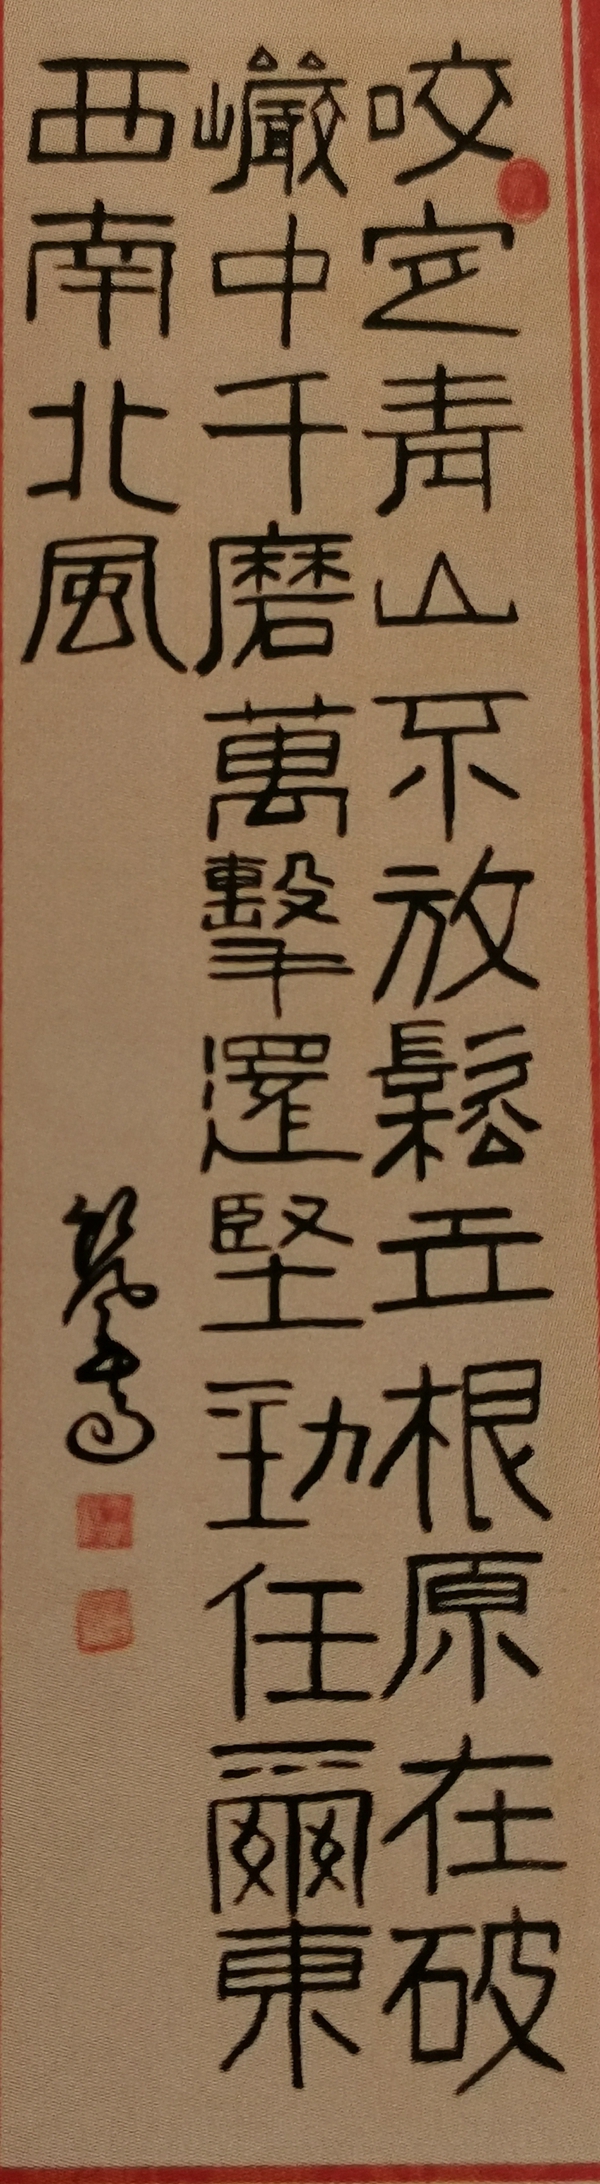 咬定青山不放鬆立根原在破
巖中千磨萬擊還堅勁任爾東
西南北風